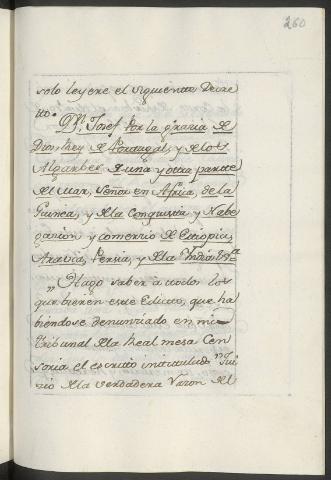 260
solo leyere el siguiente Decre
tto.
Dn. Josef Por la gracia de
Dios, Rey de Portugal, y de los
Algarbes de una y otra partte
del Mar, Señor en Africa, de la
Guinea, y de la Conquista, y Nabe
gacion, y comercio de Ettiopia,
Aravia, Persia, y de la India &a.
" Hago saber a ttodos los
que bieren este Edicto, que ha
biendose denunciado en mi
Tribunal de la Real mesa Cen
soria el escritto inttitulad. "Jui
zio de la verdadera Razon del